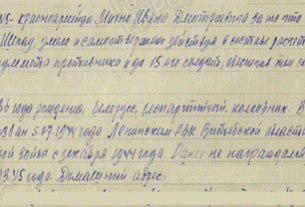 красноармейца Махно Ивана Дмитриевича за то что
умело и самоотверженно действуя в составе расчета
пулемета противника и до 15 его солдат, обеспечив тем са
6 года рождения, белорус, беспартийный, колхозник. В
ван 5.07.1944 года Лепинским РВК Витебской област
ной войны с декабря 1944 года. Ранее не награждал
3.45 года. Домашний адрес: